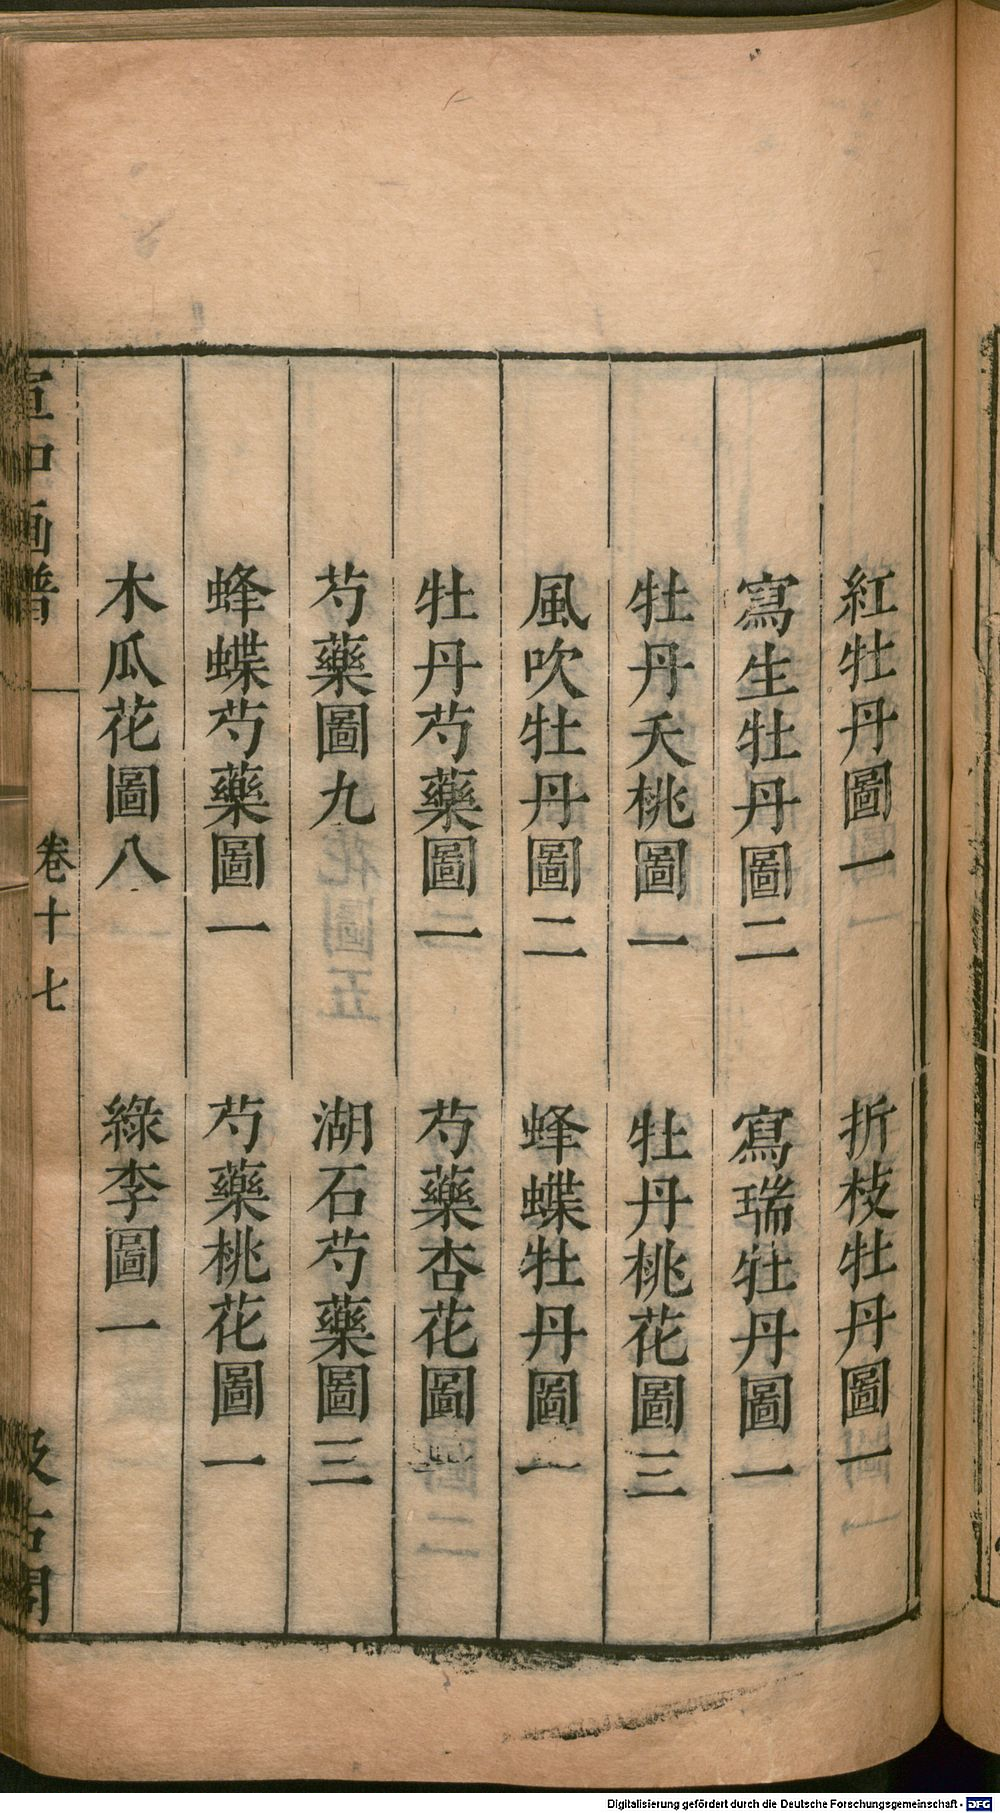 紅牡丹圖一　折枝牡丹圖一
寫生牡丹圖二　寫瑞牡丹圖一
牡丹夭桃圖一　牡丹桃花圖三
風吹牡丹圖二　蜂蝶牡丹圖一
牡丹芍藥圖一　芍藥杏花圖
芍藥圖九　湖石芍藥圖三
蜂蝶芍藥圖一　芍藥桃花圖一
木瓜花圖八　綠李圖一
宣和画譜　卷十七　汲古閣
Digitalisierung gefördert durch die Deutsche Forschungsgemeinschaft - DFG